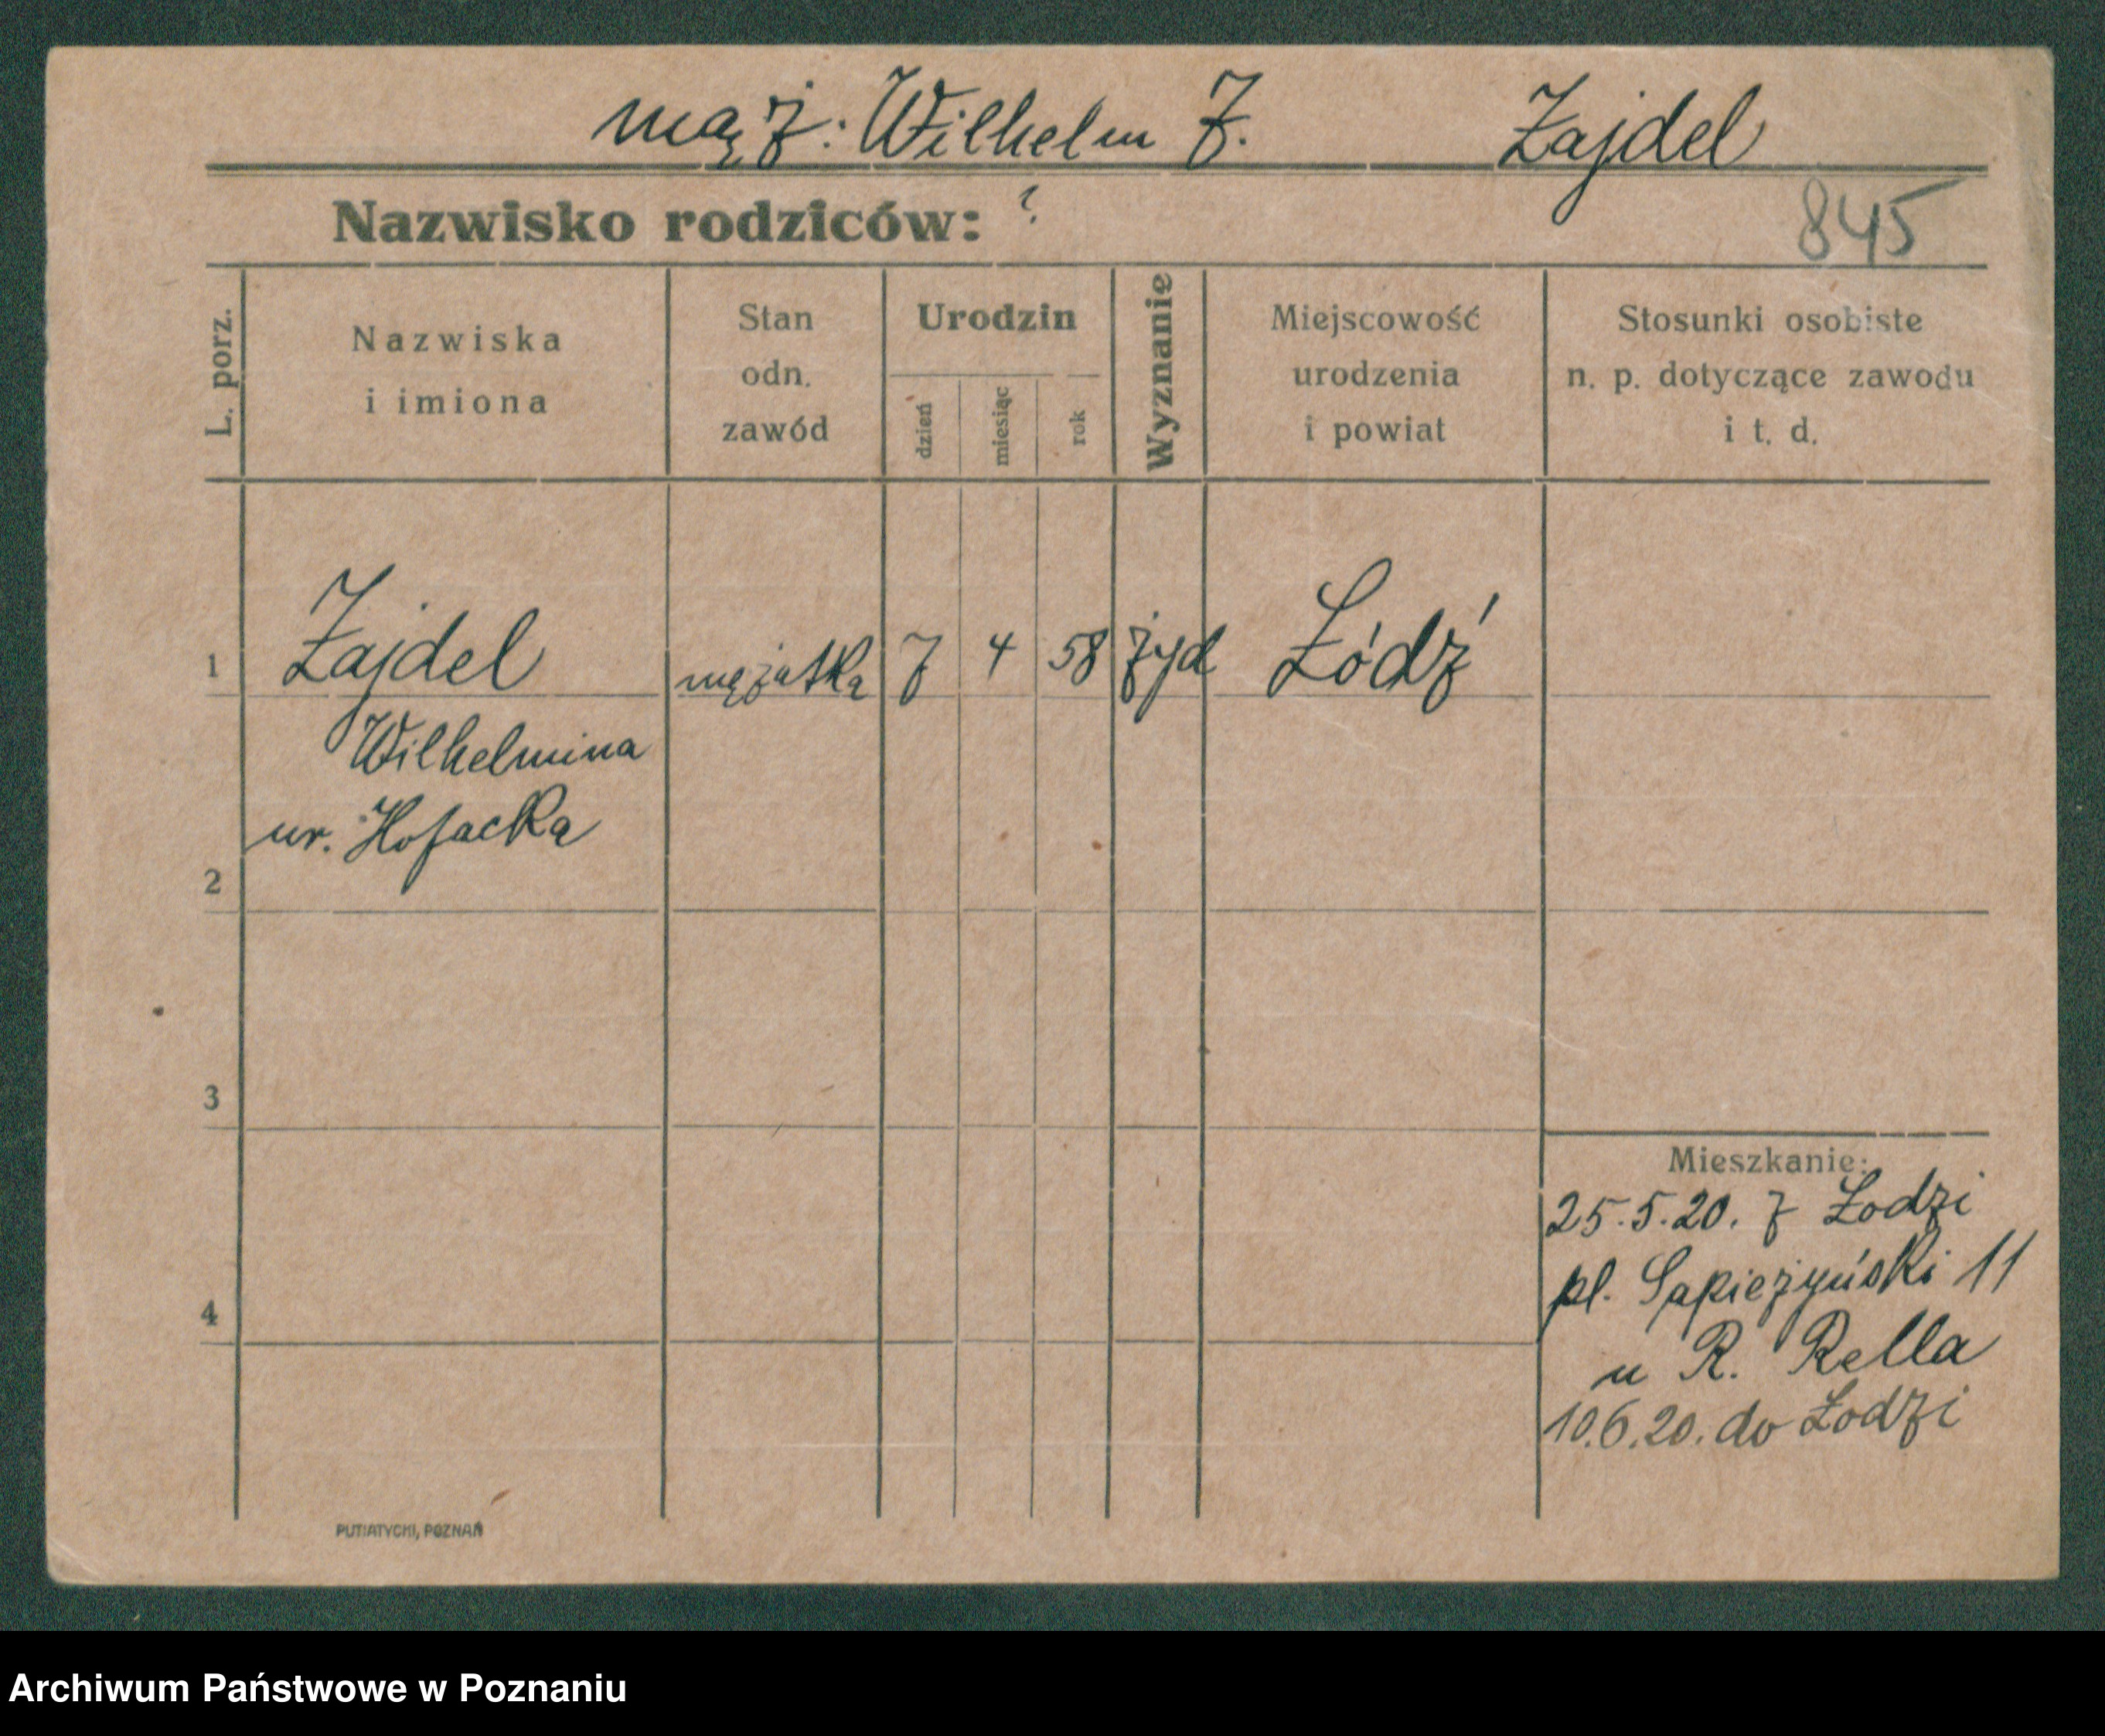 mąż: Wilhelm Z. Zajdel
Nazwisko rodziców: ?
845
L. porz.
Nazwiska
i imiona
Stan
odn.
zawód
Urodzin
dzień
miesiąc
rok
Wyznanie
Miejscowość
urodzenia
i powiat
Stosunki osobiste
n. p. dotyczące zawodu
i t. d.
1 Zajdel mężatka 7 4 58 żyd Łódź
Wilhelmina
ur. Kosacka
2
3
4
Mieszkanie:
25.5.20. z Łodzi
pl. Sapieżyński 11
u R. Rella
10.6.20. do Łodzi
PUTIATYCKI, POZNAŃ
Archiwum Państwowe w Poznaniu